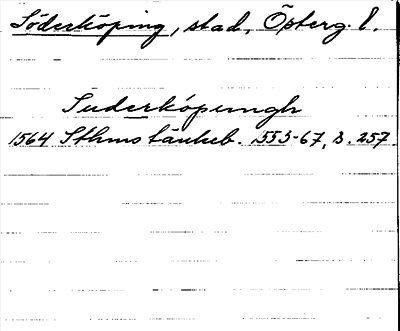 Söderköping, stad, Österg. l.
Suderköpungh
1564 Sthms tänkeb. 1553-67, s. 257